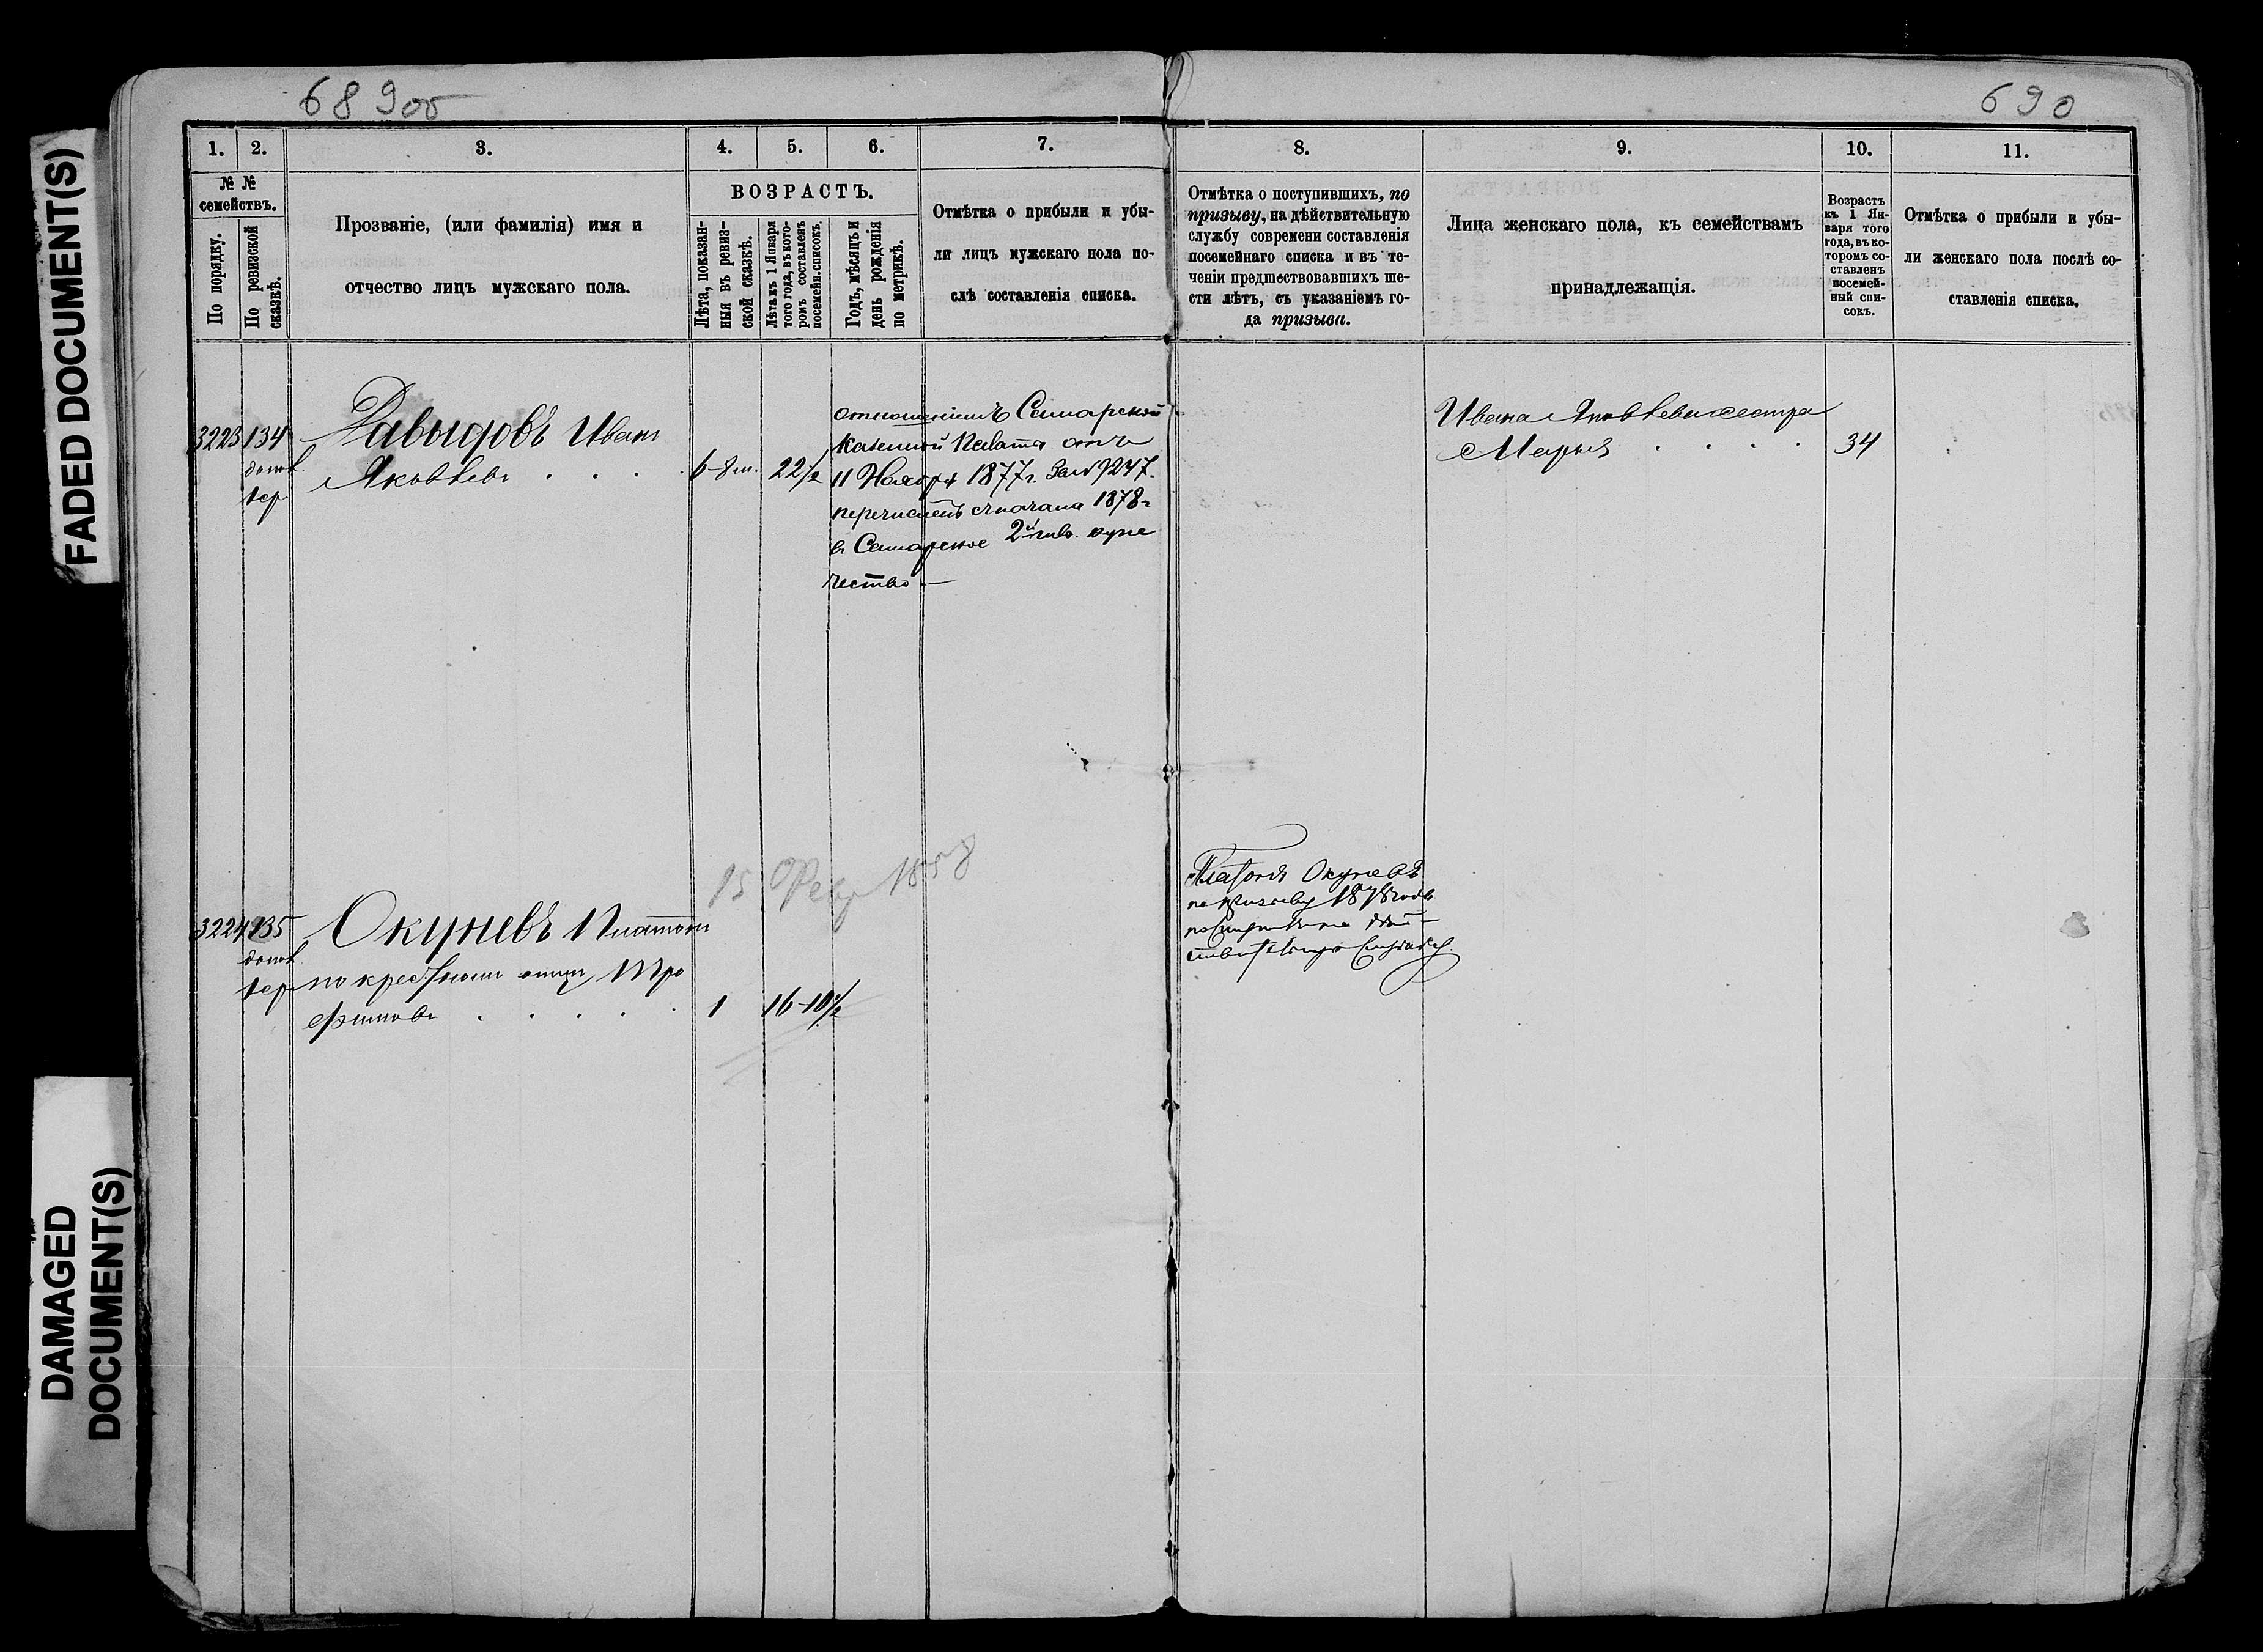 FADED DOCUMENT(S)
DAMAGED
DOCUMENT(S)
689об
690
1.
2.
3.
4.
5.
6.
7.
8.
9.
10.
11.
№ №
семействъ.
По порядку.
По ревизской
сказкѣ.
Прозваніе, (или фамилія) имя и
отчество лицъ мужскаго пола.
ВОЗРАСТЪ.
Лѣта, показан-
ныя въ ревиз-
ской сказкѣ.
Лѣта къ 1 Января
того года, въ кото-
ромъ составленъ
посемейн. списокъ.
Годъ, мѣсяцъ и
день рожденія
по метрикѣ.
Отмѣтка о прибыли и убы-
ли лицъ мужскаго пола по-
слѣ составленія списка.
Отмѣтка о поступившихъ, по
призыву, на дѣйствительную
службу современи составленія
посемейнаго списка и въ те-
ченіи предшествовавшихъ ше-
сти лѣтъ, съ указаніемъ го-
да призыва.
Лица женскаго пола, къ семействамъ
принадлежащія.
Возрастъ
къ 1 Ян-
варя того
года, въ ко-
торомъ со-
ставленъ
посемей-
ный спи-
сокъ.
Отмѣтка о прибыли и убы-
ли женскаго пола послѣ со-
ставленія списка.
3223
134
допол
1ер
Давыдовъ Иванъ
Яковлевъ
6-8м.
22½
отношеніемъ Самарской
Казенной Палаты отъ
11 Ноября 1877г. За№ 9247.
перечисленъ сначала 1878г
въ Самарское 2й гильд. купе
чество —
Ивана Яковлева сестра
Марья
34
15 Февр 1858
3224
135
допол
1ер
Окуневъ Платонъ
по крестному отцу Тро
фимовъ
1
16-10½
Платонъ Окуневъ
по призыву 1878 года
поступилъ на дѣй-
ствительную службу.